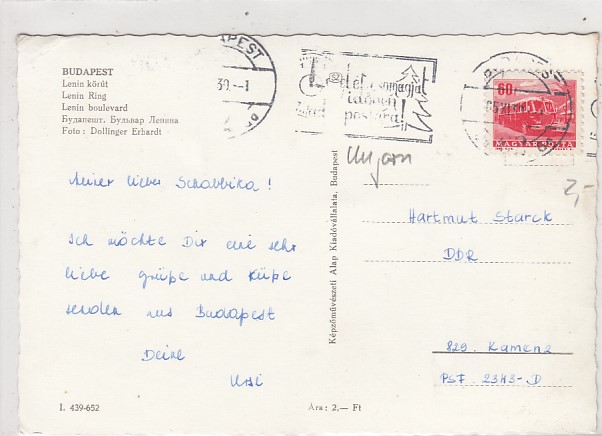 BUDAPEST
Lenin körút
Lenin Ring
Lenin boulevard
Будапешт. Бульвар Ленина
Foto : Dollinger Erhardt
BUDAPEST
39.-1
télicsomagját
időben
postára!
60
MAGYAR POSTA
Ungarn
2,-
lieber Schabbika!
Ich möchte Dir eine sehr
liebe grüße und Küße
senden aus Budapest
Deine
Ursi
Képzőművészeti Alap Kiadóvállalata, Budapest
Hartmut Starck
DDR
829. Kamenz
PSF 2343-D
I. 439-652
Ára: 2,— Ft